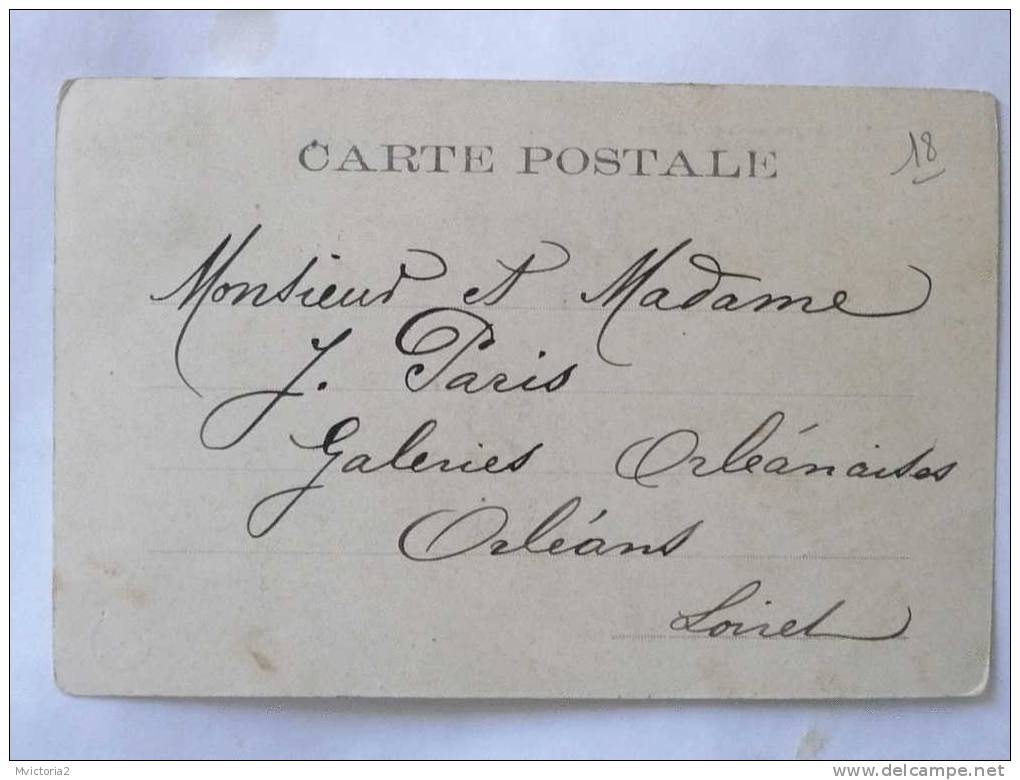 CARTE POSTALE
18
Monsieur et Madame
J. Paris
Galeries Orléanaises
Orléans
Loiret
Mvictoria2
www.delcampe.net